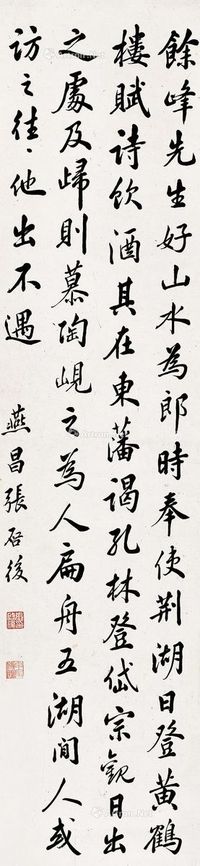 餘峰先生好山水為郎時奉使荆湖日登黄鶴
樓賦詩飲酒其在東藩謁孔林登岱宗觀日出
之處及歸則慕陶峴之為人扁舟五湖間人或
訪之往往他出不遇
燕昌張啓後